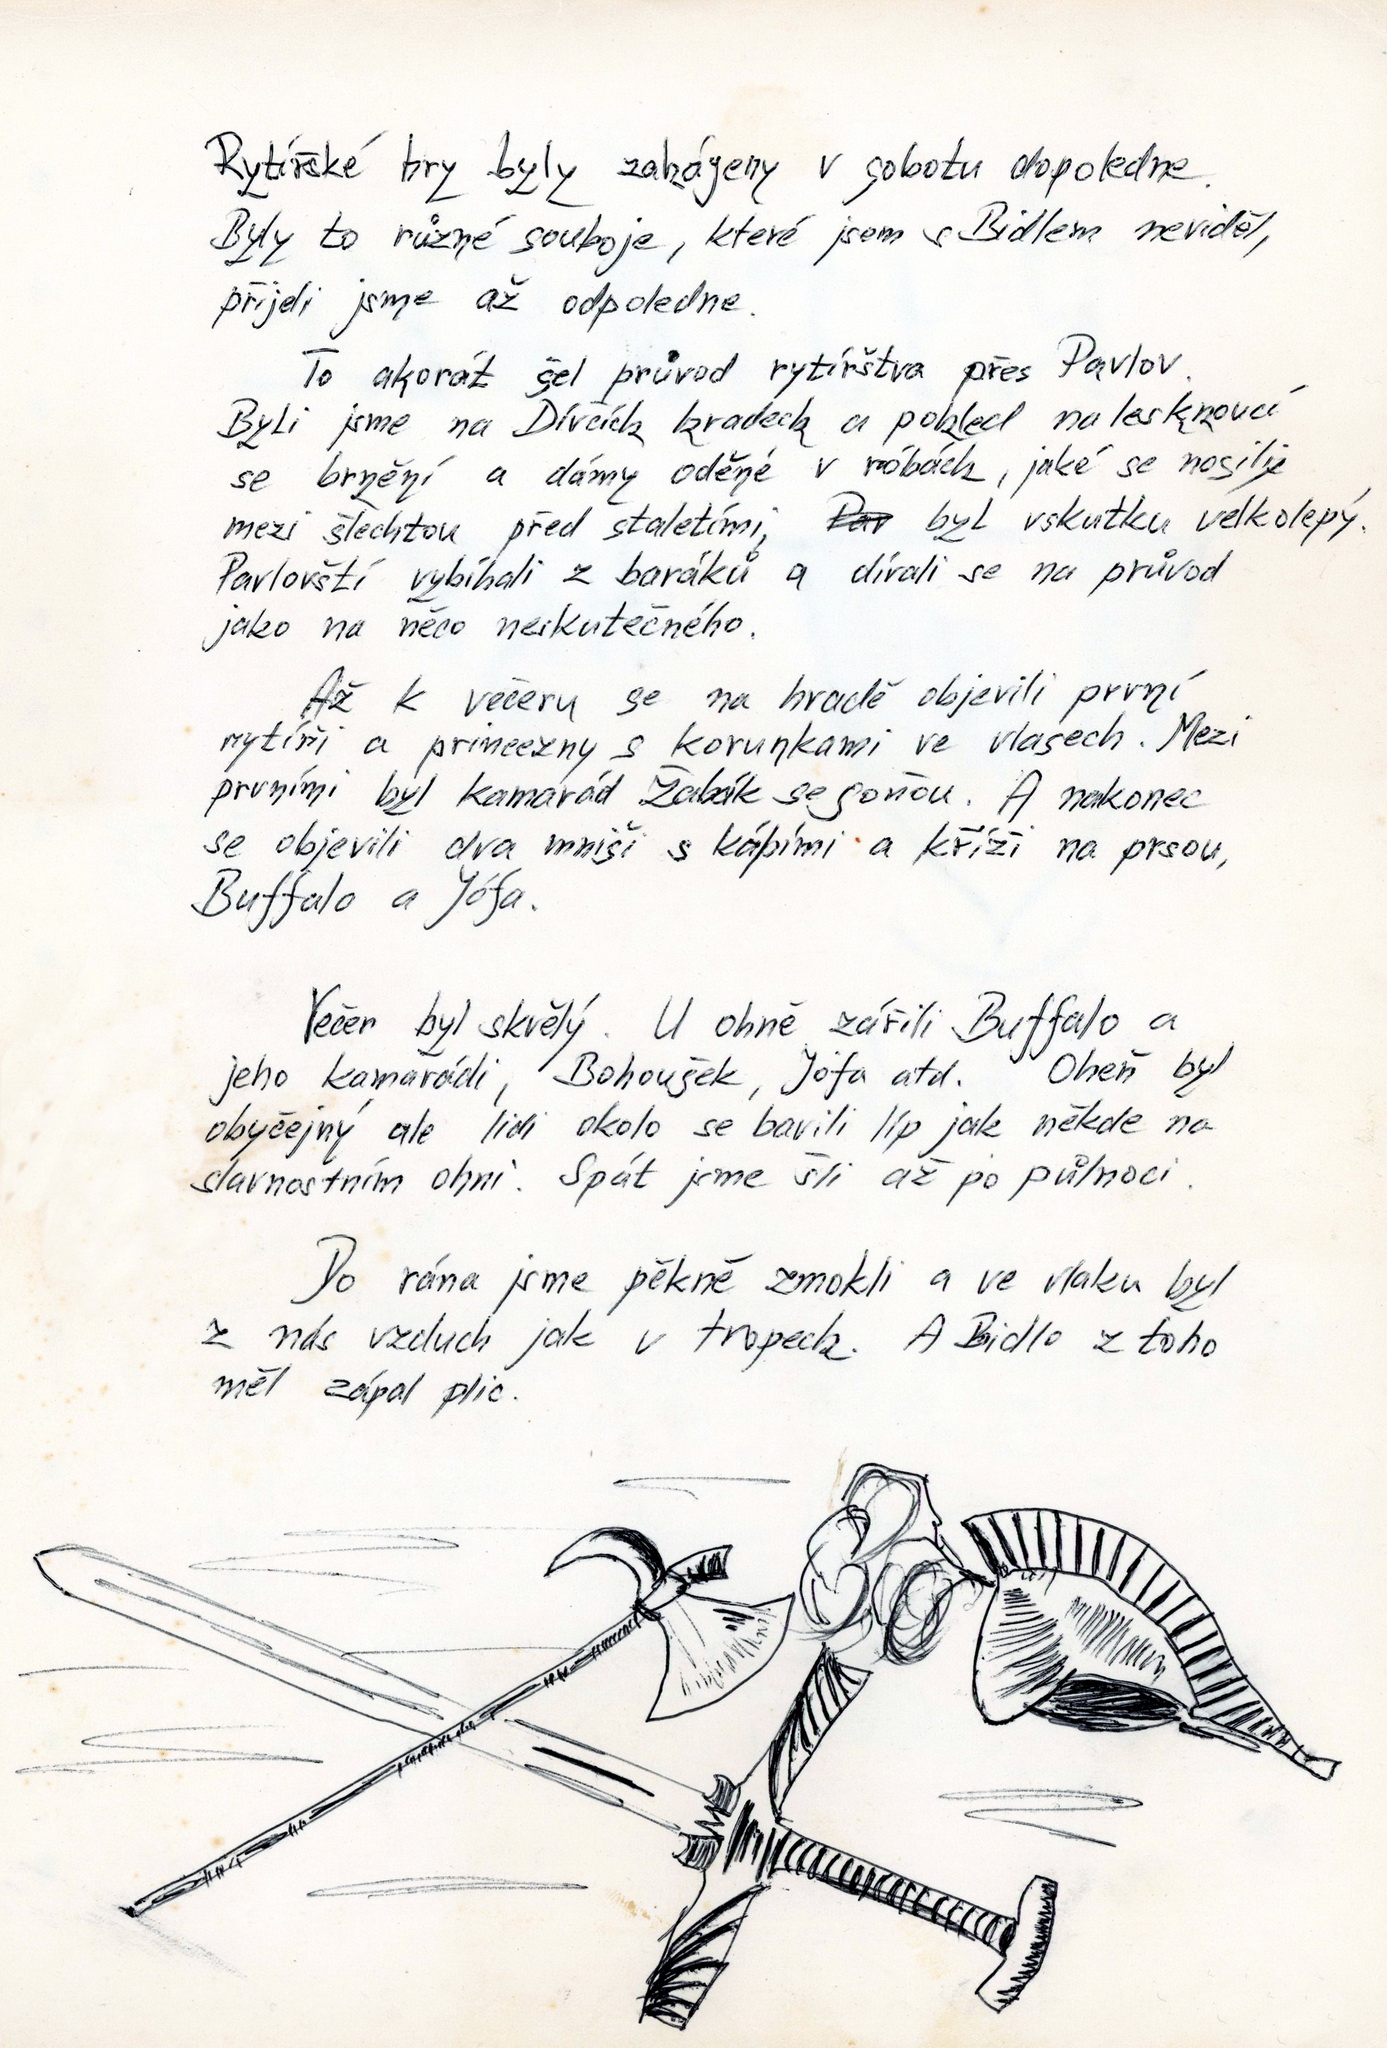 Rytířské hry byly zahájeny v sobotu dopoledne.
Byly to různé souboje, které jsem s Bidlem neviděl,
přijeli jsme až odpoledne.
To akorát šel průvod rytířstva přes Pavlov.
Byli jsme na Dívčích hradech a pohled na lesknoucí
se brnění a dámy oděné v róbách, jaké se nosily
mezi šlechtou před staletími, byl vskutku velkolepý.
Pavlovští vybíhali z baráků a dívali se na průvod
jako na něco neskutečného.
Až k večeru se na hradě objevili první
rytíři a princezny s korunkami ve vlasech. Mezi
prvními byl kamarád Žabák se Soňou. A nakonec
se objevili dva mniši s kápími a kříži na prsou,
Buffalo a Jófa.
Večer byl skvělý. U ohně zářili Buffalo a
jeho kamarádi, Bohoušek, Jófa atd. Oheň byl
obyčejný ale lidi okolo se bavili líp jak někde na
slavnostním ohni. Spát jsme šli až po půlnoci.
Do rána jsme pěkně zmokli a ve vlaku byl
z nás vzduch jak v tropech. A Bidlo z toho
měl zápal plic.